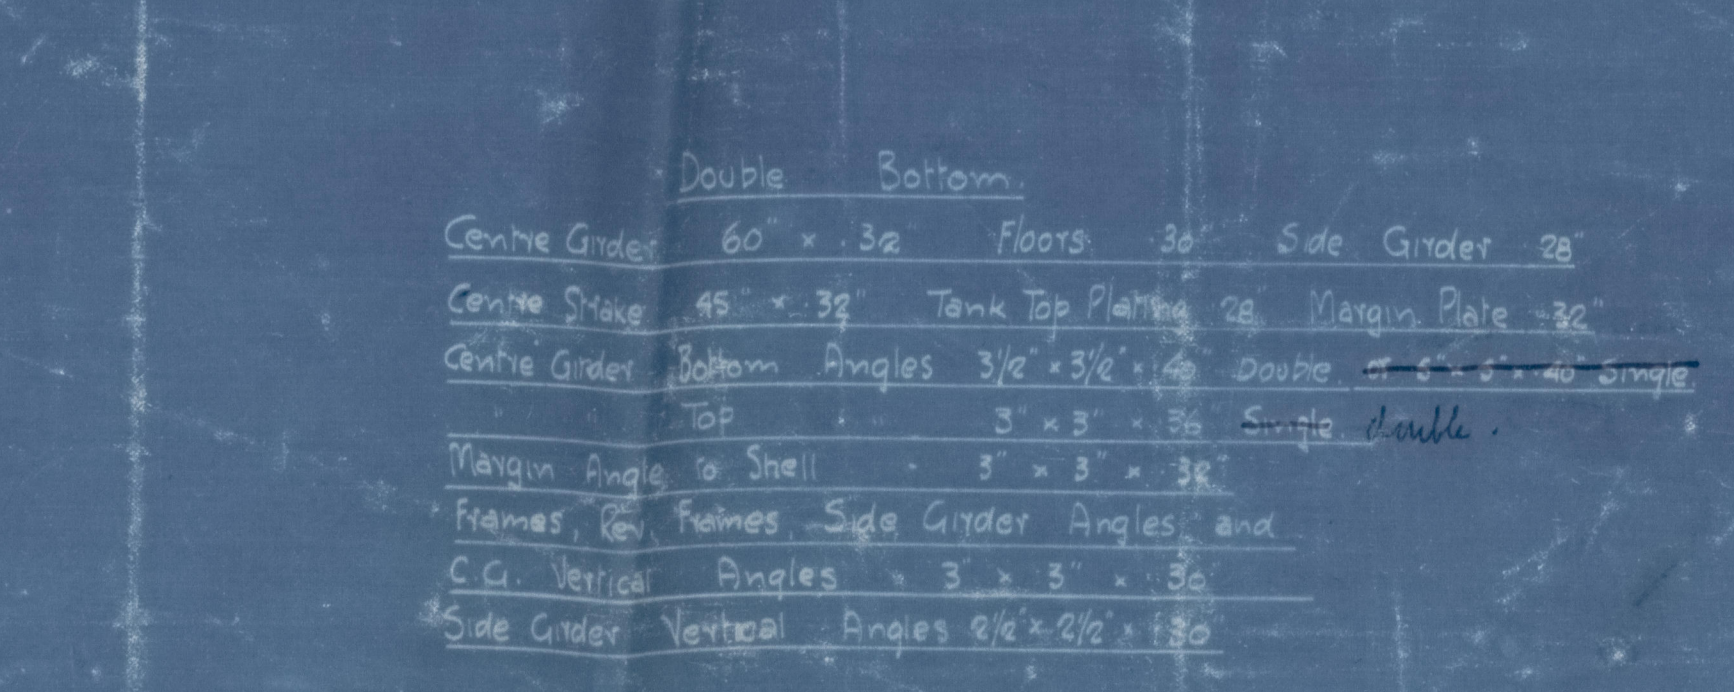 Double Bottom.
Centre Girder 60" x .32" Floors .30 Side Girder .28"
Centre Strake 45" x .32" Tank Top Plating .28 Margin Plate .32"
Centre Girder Bottom Angles 3 1/2" x 3 1/2" x .40 Double or 5" x 5" x .40" Single
" " Top " " 3" x 3" x .36 Single double.
Margin Angle to Shell 3" x 3" x .32
Frames, Rev. Frames, Side Girder Angles and
C.G. Vertical Angles 3" x 3" x .30
Side Girder Vertical Angles 2 1/2" x 2 1/2" x .30"